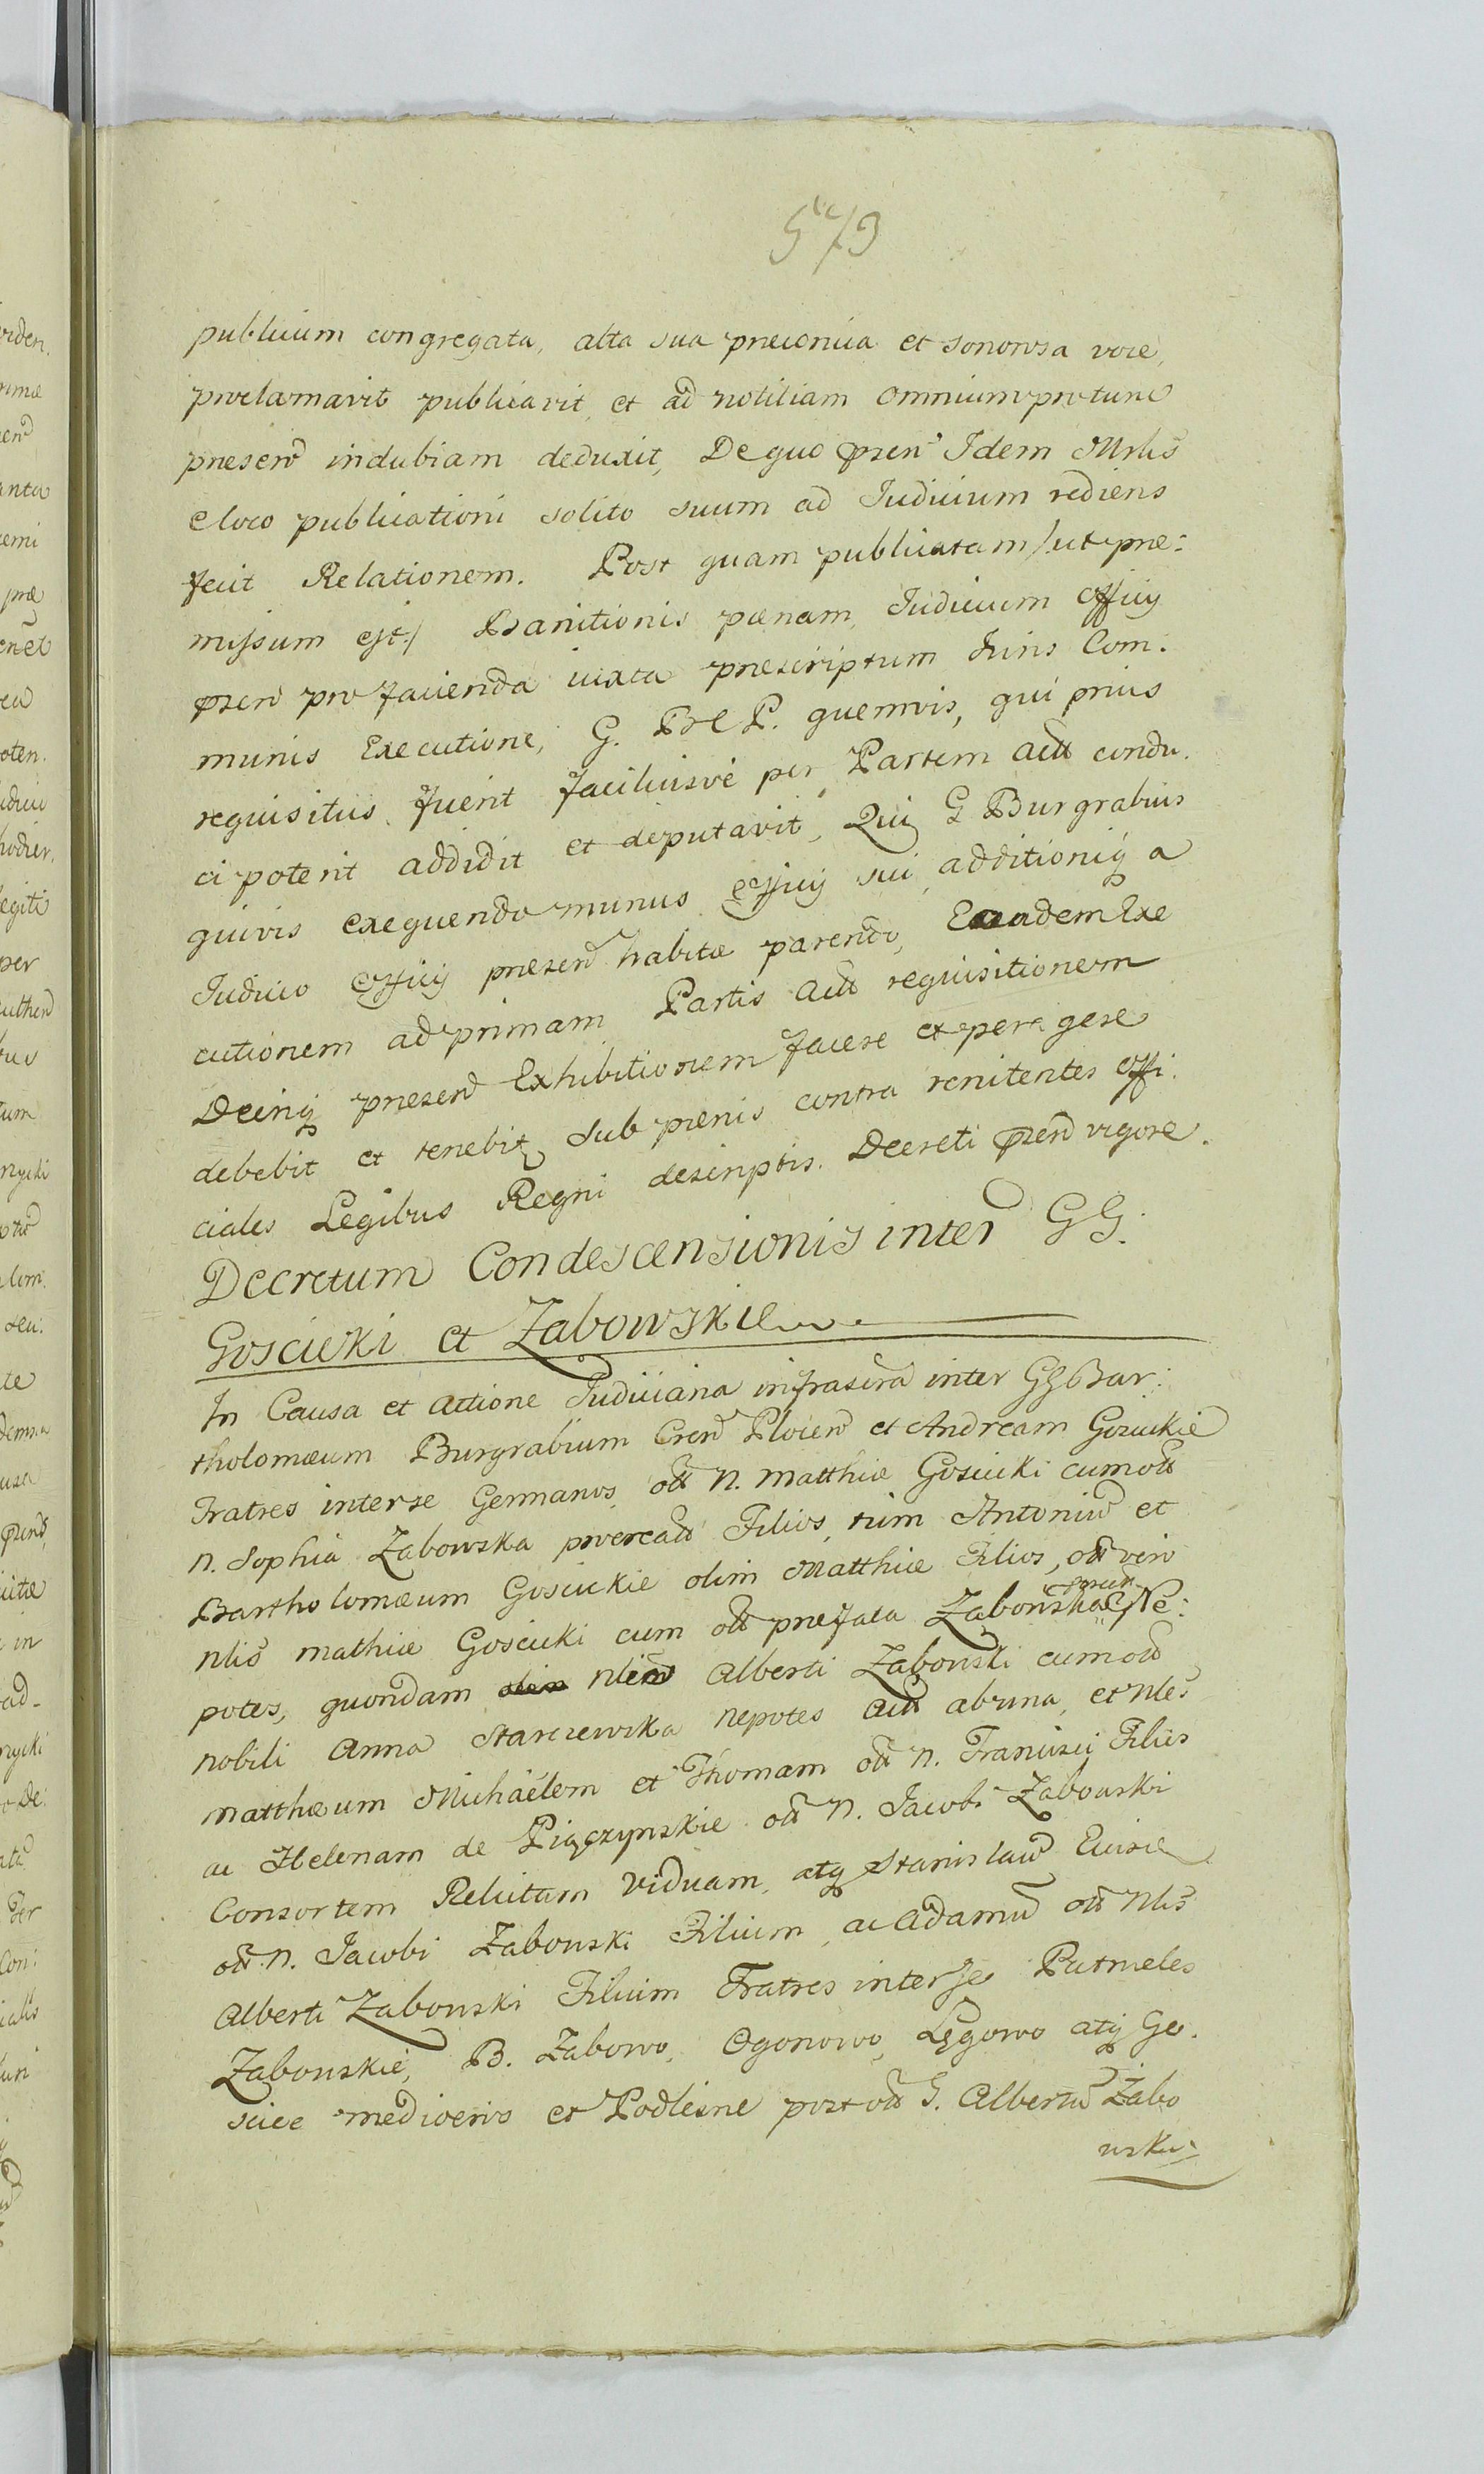 579
publicum congregata, alta sua preconica et sonorosa voce,
proclamavit publicavit, et ad notitiam omnium pro tunc
presen indubiam deduxit, De quo pren Idem Mrlis
e loco publicationi solito suum ad Iudicium rediens
fecit Relationem. Post quam publicatam /: ut pre:
missum est :/ Banitionis pænam, Iudicium Officij
præn pro facienda iuxta prescriptum Iuris Com:
munis Executione, G. B. C. P. quemvis, qui prius
requisitus fuerit faciliusve per Partem Act condu.
ci poterit addidit et deputavit, Qui G Burgrabius
quivis exequendo munus Officij sui, additioniq a
Iudicio Officij presen habitæ parendo, Eandem Exe
cutionem ad primam Partis Act requisitionem
Deinq presen Exhibitionem facere et peragere
debebit et tenebit Sub pænis contra renitentes offi.
ciales Legibus Regni descriptis. Decreti præn vigore.
Decretum Condescensionis inter GG.
Goscicki et Zabowskie
In Causa et Actione Iudiciaria infrascra inter GG Bar:
tholomæum Burgrabium Cren Plocen et Andream Goscickie
Fratres inter se Germanos, olt N. Matthiæ Goscicki cum olt
N. Sophia Zabowska procreatt Filios, tum Antoniu et
Bartholomæum Goscickie olim Matthiæ Filios, olt vero
Nlis Mathiæ Goscicki cum olt prefata Zabowska procreat Ne:
potes, quondam Nlem Alberti Zabowski cum olt
nobili Anna Starczewska nepotes Act ab una, et Nles
Matthæum Michaëlem et Thomam olt N. Francisci Filios
ac Helenam de Pigczynskie olt N. Iacobi Zabowski
Consortem Relictam Viduam, atq Stanislau Eiusd
olt N. Iacobi Zabowski Filium, ac Adamu olt Nlis
Alberti Zabowski Filium Fratres inter se Patrueles
Zabowskie, B. Zabowo, Ogonowo, Lęgowo atq Go.
scice medioeris et Podlesne post olt G. Albertu Zabo
wski